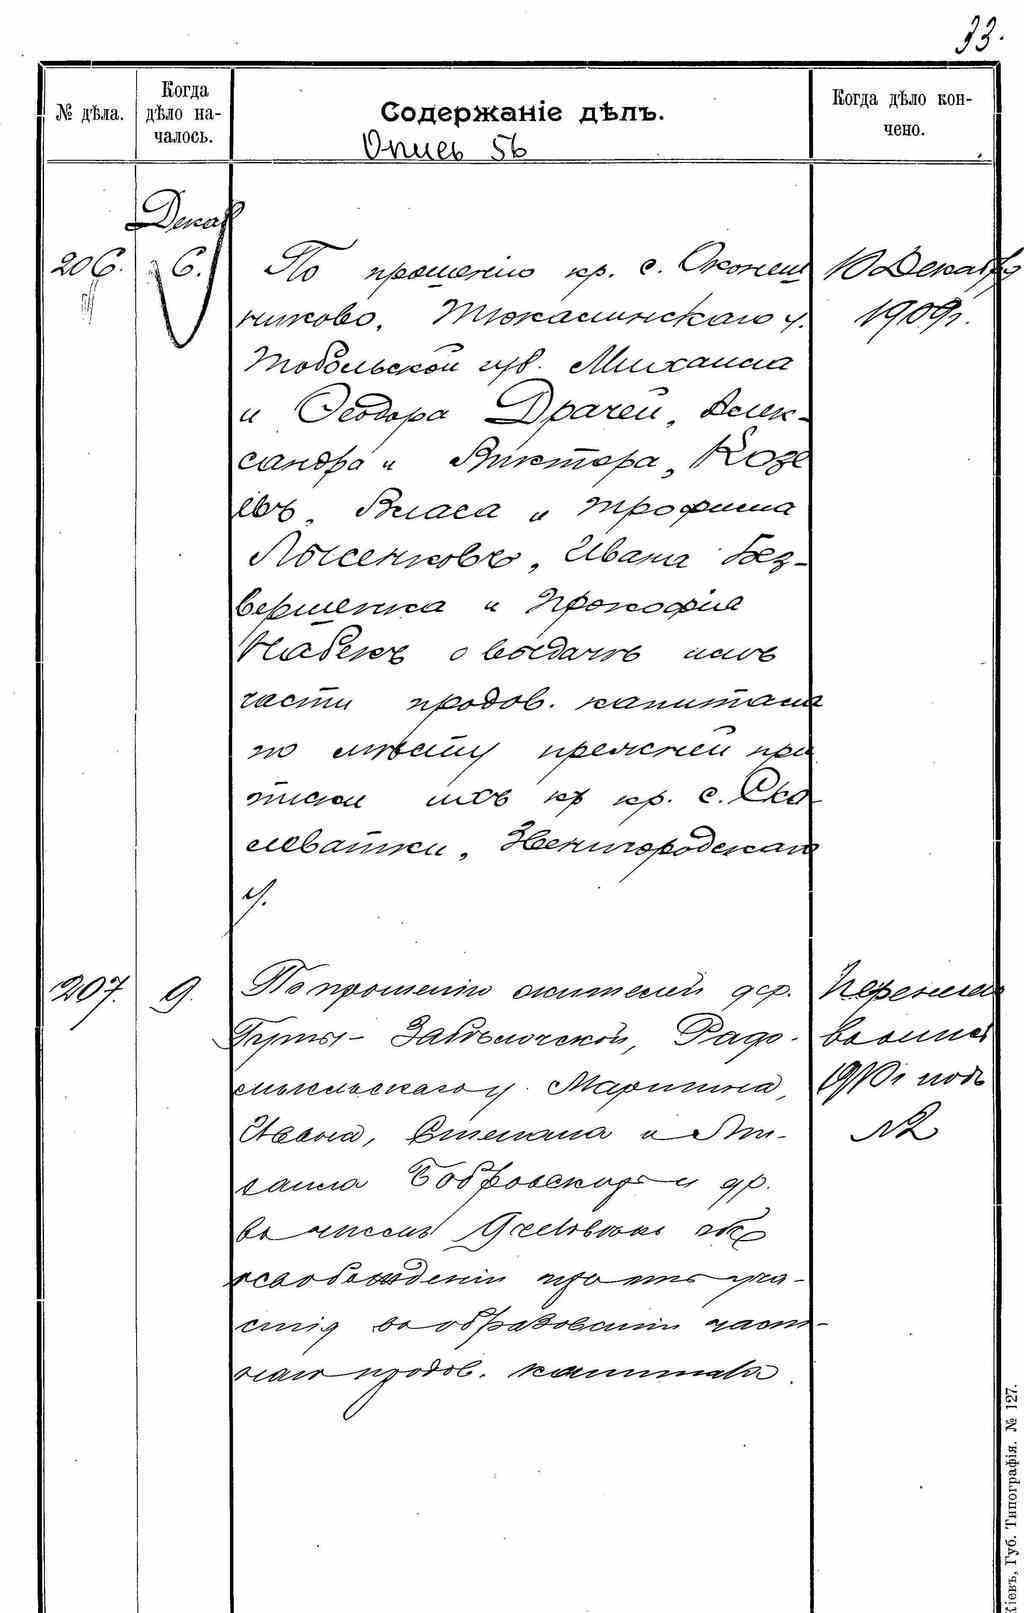 33.
№ дѣла.
Когда
дѣло на-
чалось.
Содержаніе дѣлъ.
Опись 56
Когда дѣло кон-
чено.
Декаб
206.
6.
По прошенію кр. с. Оконеш
никово, Тюкалинскаго у.
Тобольской губ. Михаила
и Ѳеодора Драчей, Алек-
сандра и Виктора, Козе
евъ, Власа и Трофима
Лысенковъ, Ивана Без-
вершенка и Прокофія
Набекъ о выдачѣ имъ
части продов. капитала
по мѣсту прежней при
писки ихъ къ кр. с. Ска
леватки, Звенигородскаго
у.
10 Декабря
1909 г.
207.
9.
По прошенію жителей дер.
Гуты-Забѣлочской, Радо-
мысльскаго у. Мартина,
Ивана, Степана и Ми-
хаила Бобровских и др.
въ числѣ 9 человѣкъ об
освобожденіи противъ уча-
стія въ образованіи част-
наго продов. капитала.
Перенесено
въ опись
1910 г подъ
№2
Кіевъ, Губ. Типографія. № 127.